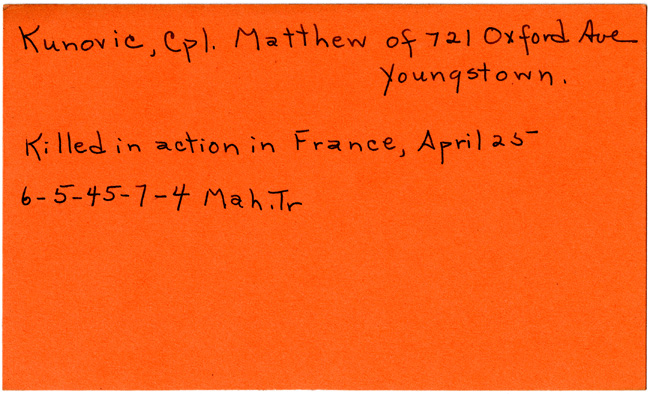 Kunovic, Cpl. Matthew of 721 Oxford Ave
Youngstown.
Killed in action in France, April 25
6-5-45-7-4 Mah.Tr